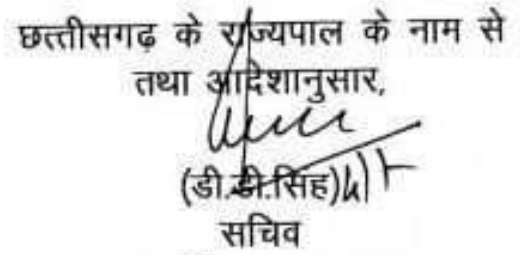 छत्तीसगढ़ के राज्यपाल के नाम से
तथा आदेशानुसार,
(डी.डी.सिंह)
सचिव